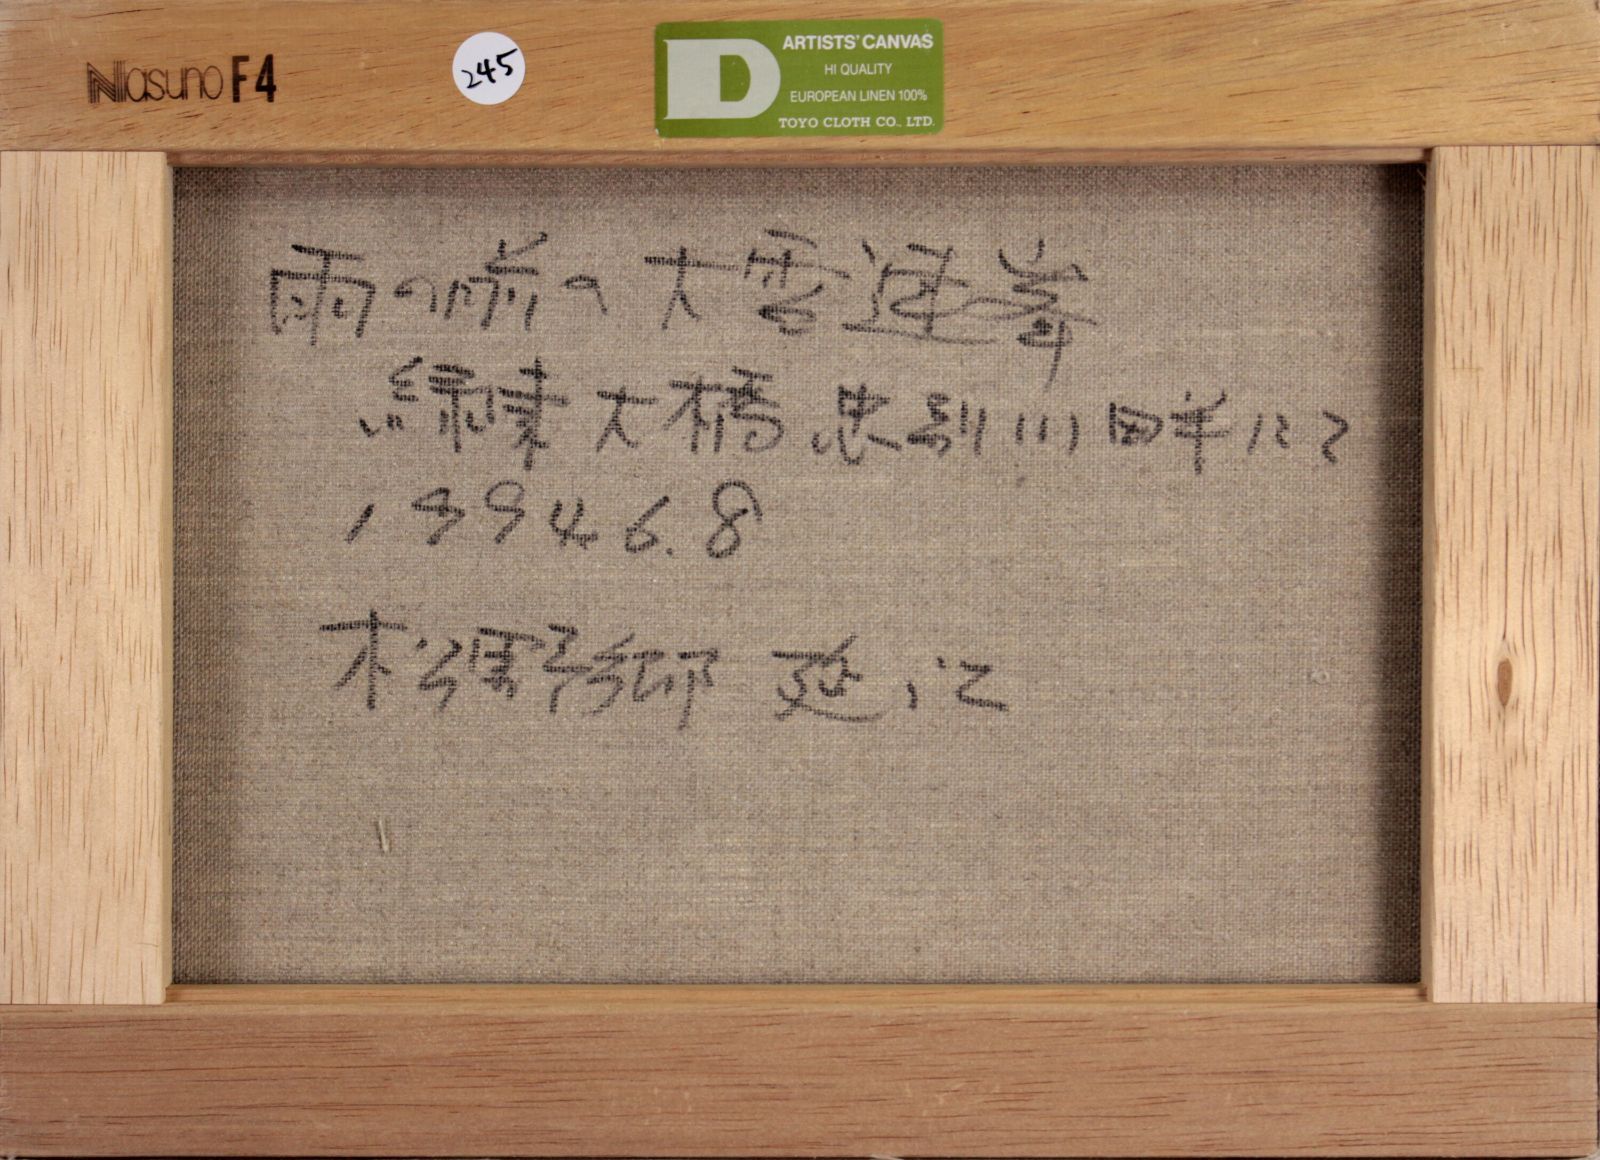 Nasuno F4
245
D
ARTISTS' CANVAS
HI QUALITY
EUROPEAN LINEN 100%
TOYO CLOTH CO., LTD.
雨の前の大雪連峯
緑東大橋 忠別川畔にて
1994.6.8